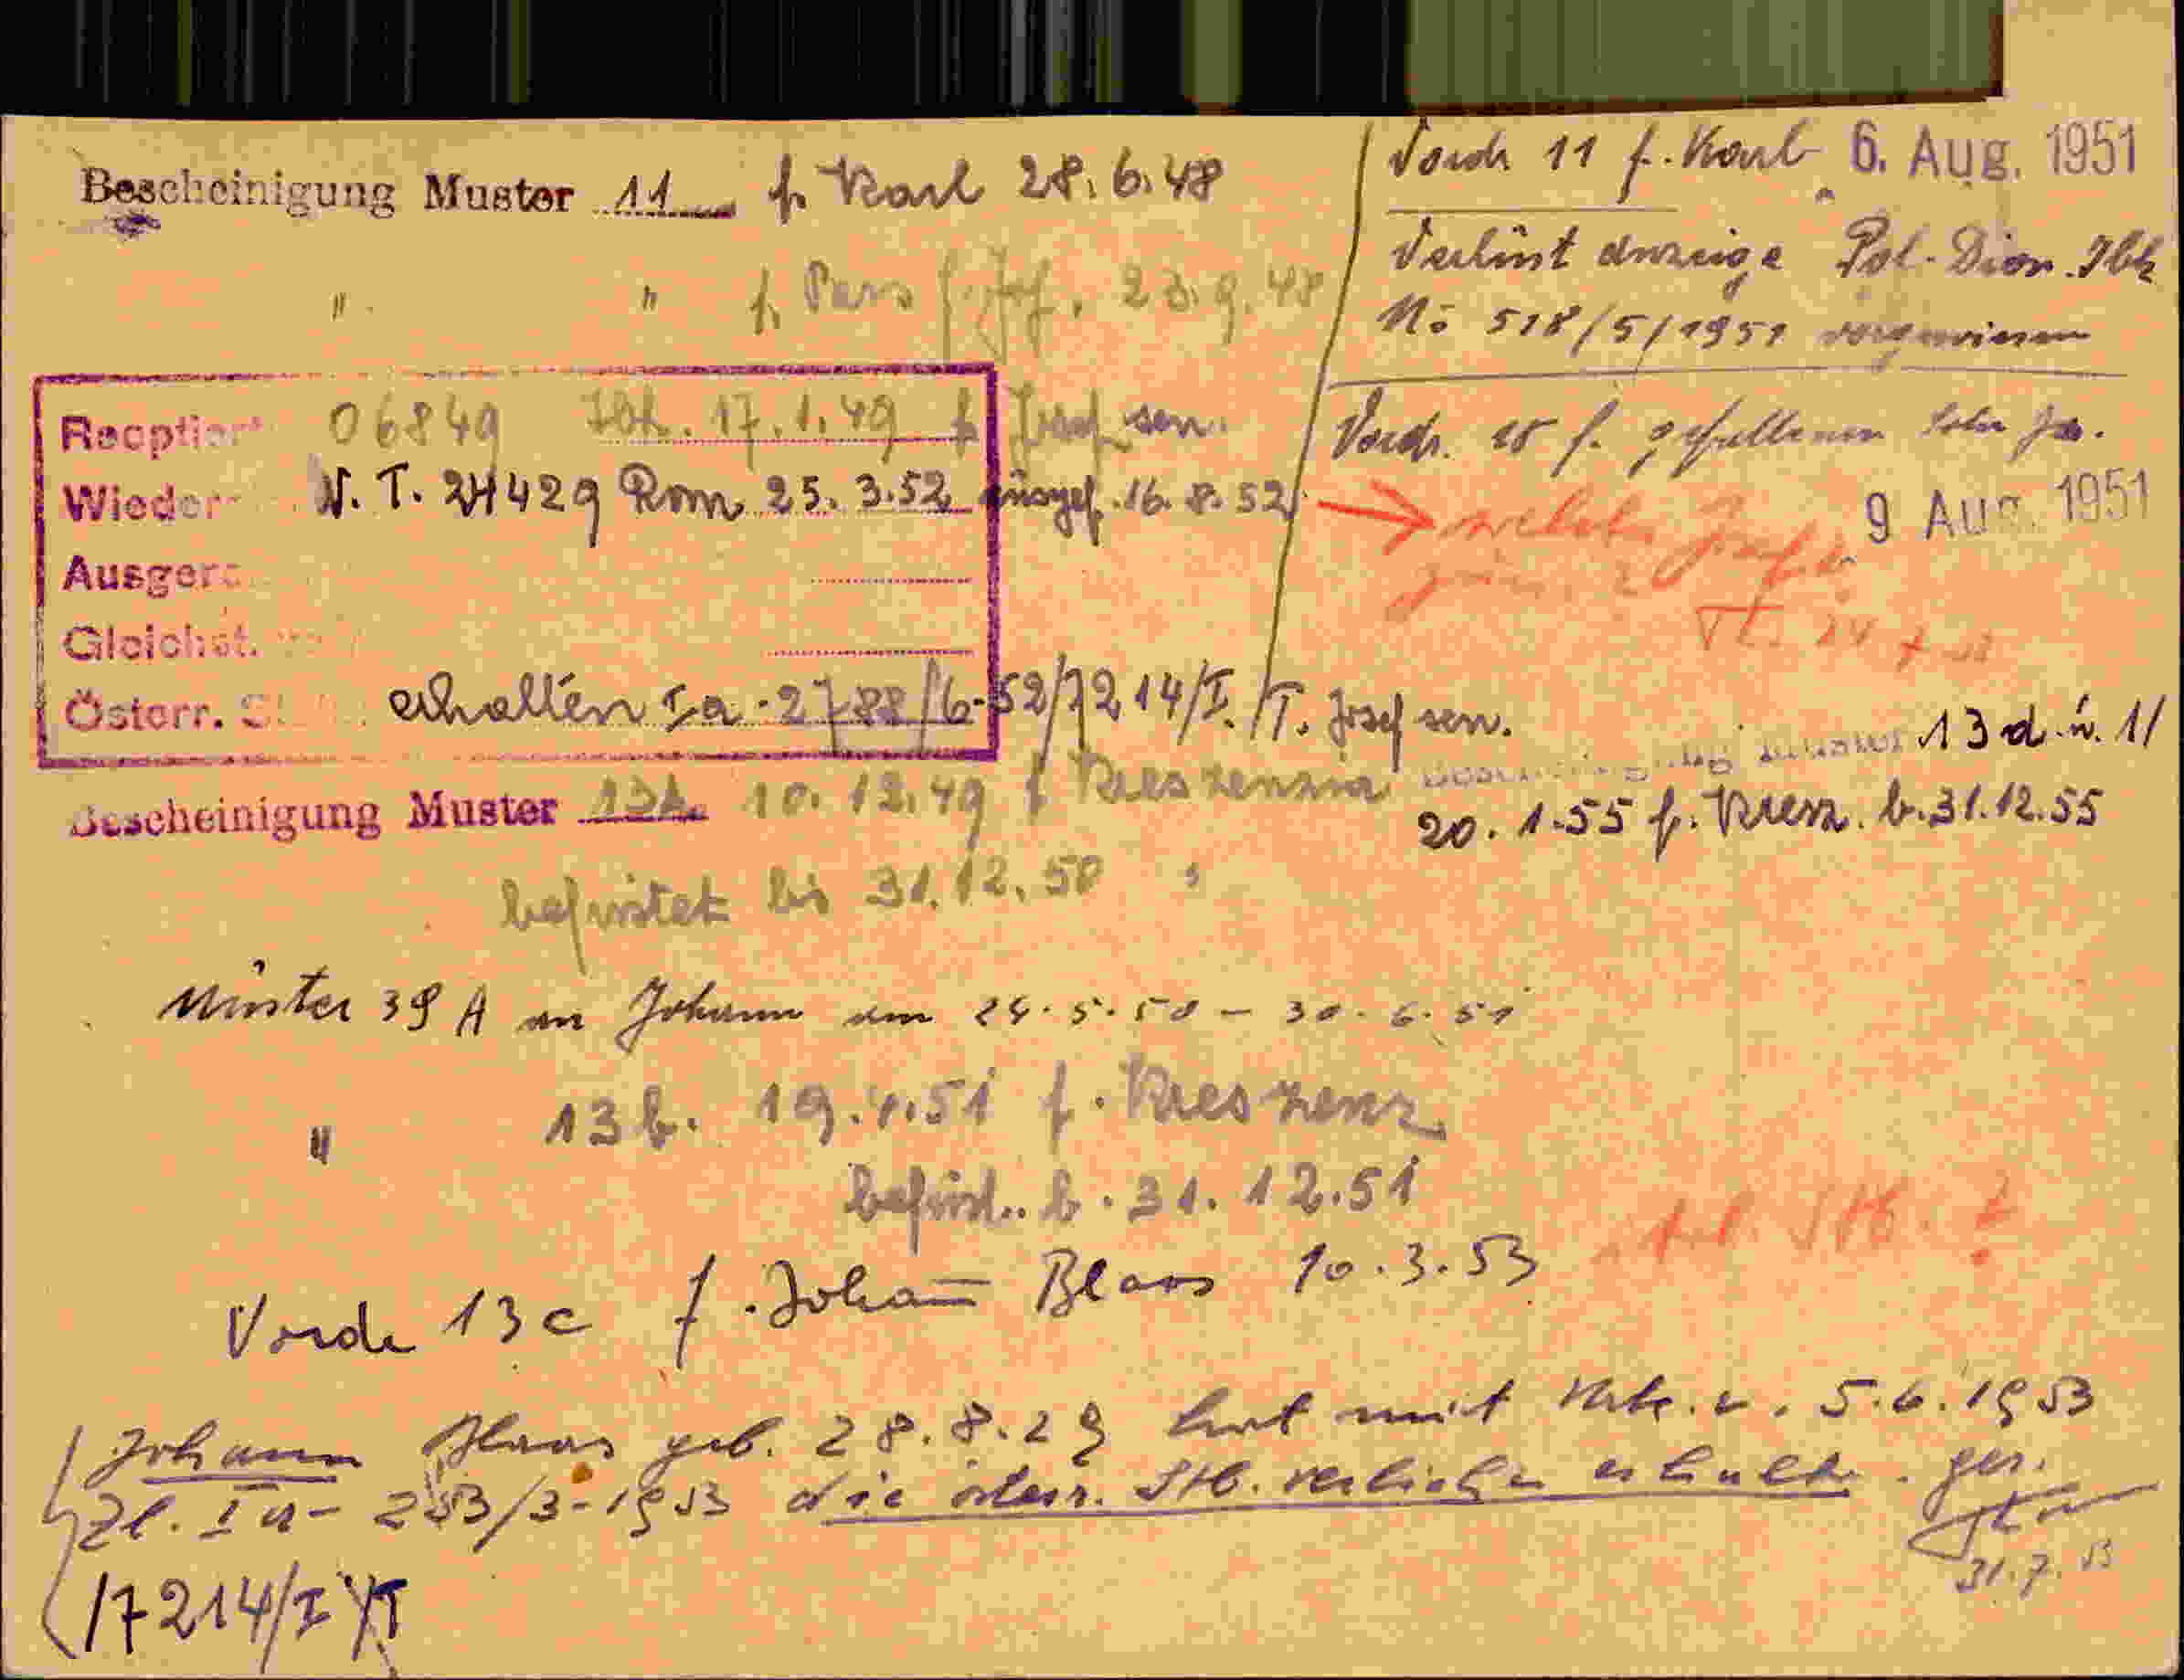 Bescheinigung Muster 11 f. Karl 28.6.48
" " f. Pers f. Jos. 23.9.48
Reoptiert 06849 Ibk. 17.1.49 f. Josef sen.
Wieder N.T. 24429 Rom 25.3.52 ausgef. 16.8.52
Ausger
Gleichst.
Österr. St erhalten Ia-2788/6-52/7214/I./T. Josef sen.
Bescheinigung Muster 10.12.49 f Kreszenzia
befristet bis 31.12.50
Muster 39 A an Johann am 24.5.50 - 30.6.51
" 13b. 19.4.51 f. Kreszenz
befrist. b. 31.12.51
Vordr 13c f. Johann Blaas 10.3.53
Johann Blaas geb. 28.8.29 hat mit 5.6.1953
Zl. Ia- 253/3-1953 die österr. Stb. verliehen erhalten. gez.
31.7.53
17214/I/T
Vordr 11 f. Karl 6. Aug. 1951
Verlust anzeige Pol. Dion. Ibk
No 518/5/1951 vorgewiesen
Vordr. f. gefallenen Sohn Jos.
9 Aug. 1951
welche Josef
Bescheinigung Muster 13 d. u. 11
20.1.55 f. Kresz. b. 31.12.55
Stb. ?